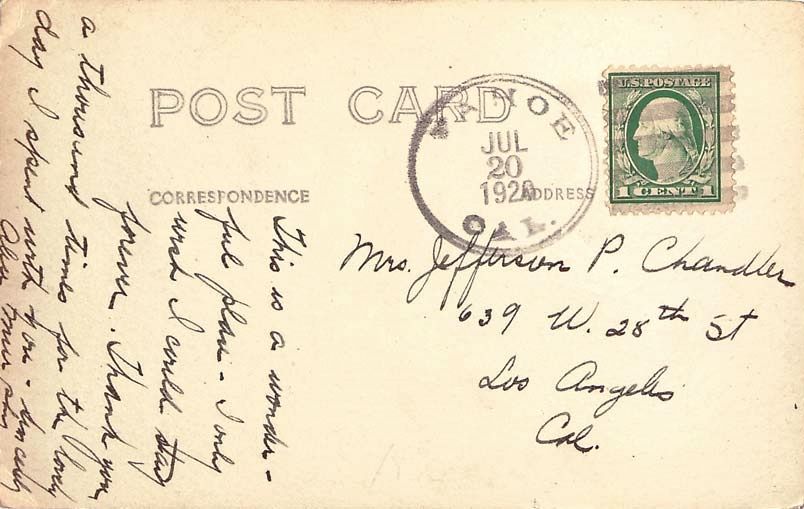 POST CARD
TAHOE
JUL
20
1920
CAL.
U.S. POSTAGE
1 CENT 1
CORRESPONDENCE
ADDRESS
This is a wonder-
ful place - I only
wish I could stay
forever. Thank you
a thousand times for the lovely
day I spent with you - sincerely
Mrs. Jefferson P. Chandler
639 W. 28th St
Los Angeles
Cal.